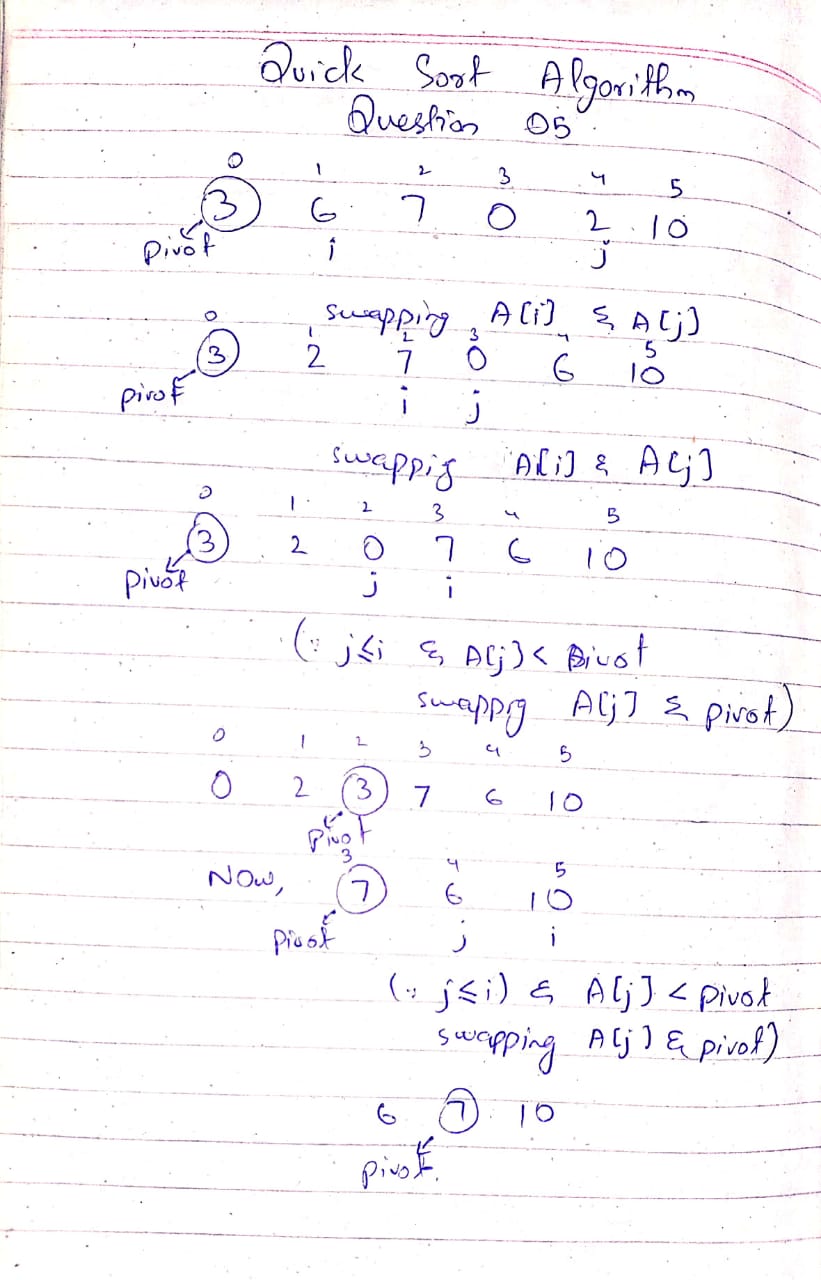 Quick Sort Algorithm
Question 05
0 1 2 3 4 5
3 6 7 0 2 10
pivot i j
swapping A[i] & A[j]
0 1 2 3 4 5
3 2 7 0 6 10
pivot i j
swappig A[i] & A[j]
0 1 2 3 4 5
3 2 0 7 6 10
pivot j i
(∵ j≤i & A[j] < Pivot
swappig A[j] & pivot)
0 1 2 3 4 5
0 2 3 7 6 10
pivot
3 4 5
Now, 7 6 10
pivot j i
(∵ j≤i) & A[j] < pivot
swapping A[j] & pivot)
6 7 10
pivot.